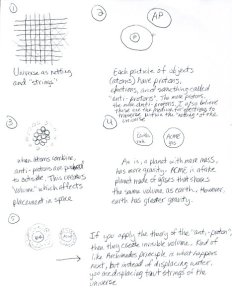 1
Universe as netting
and "strings".
2
AP
Each particle of objects
(atoms) have protons,
electrons, and something called
"anti-protons". The more protons,
the more anti-protons. I also believe
these are the medium for electrons to
traverse within the "netting" of the
universe
3
when atoms combine,
anti-protons are pushed
to outside. This creates
"volume" which affects
placement in space
4
Earth
ACME
As is, a planet with more mass,
has more gravity. ACME is a fake
planet made of gases that shares
the same volume as earth. However,
earth has greater gravity.
5
If you apply the theory of the "anti-proton",
then they create invisible volume. Kind of
like Archimedes principle is what happens
next, but instead of displacing water,
you are displacing taut strings of the
universe